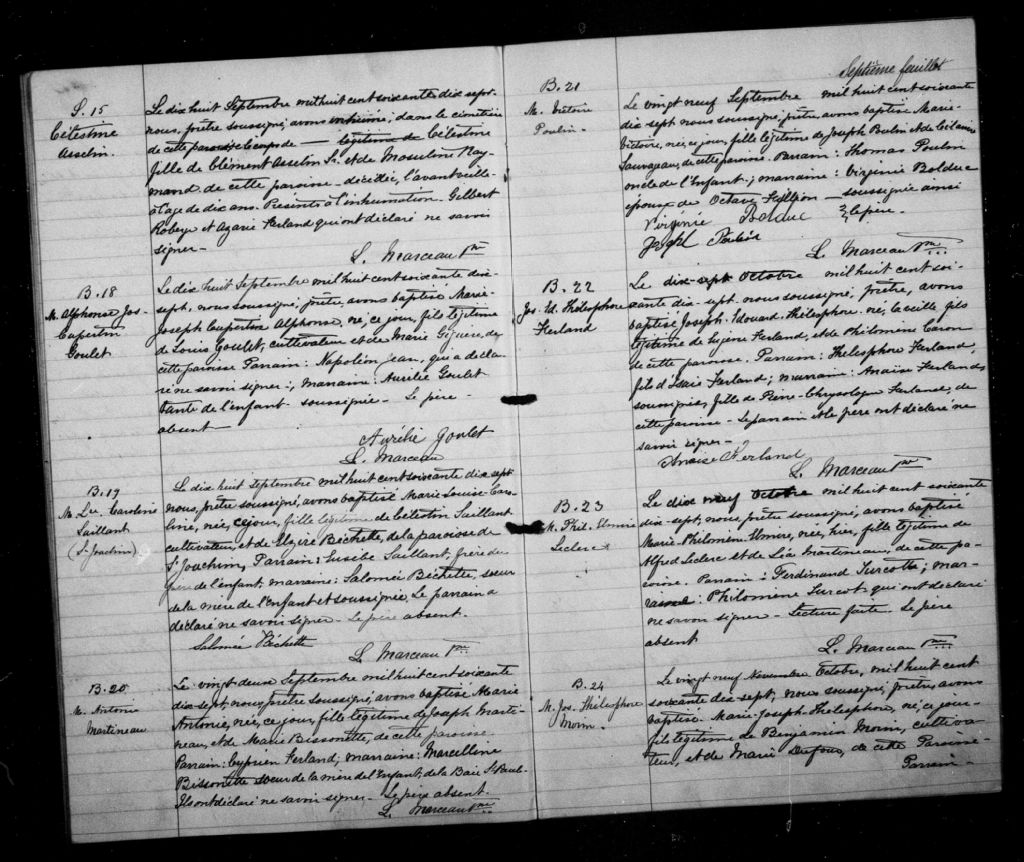 S. 15
Célestine
Asselin.
Le dix huit Septembre mil huit cent soixante dix sept
nous, prêtre soussigné, avons inhumé, dans le cimetière
de cette paroisse le corps de — légitime de Célestine
fille de Clément Asselin Sr. et de Moseline Ray-
mond de cette paroisse décédée, l'avant veille
à l'age de dix ans. Présents à l'inhumation. Gilbert
Roberge et Azarie Ferland qui ont déclaré ne savoir
signer —
L. Marceau Ptre
B. 18
M. Alphonse Jos
Cupertin
Goulet
Le dix huit Septembre mil huit cent soixante dix-
sept, nous soussigné, prêtre, avons baptisé Marie-
Joseph Cupertin Alphonse, né, ce jour, fils légitime
de Louis Goulet, cultivateur et de Marie Giguère, de
cette paroisse Parrain: Napoléon Jean, qui a décla-
ré ne savoir signer; Marraine: Aurélie Goulet
tante de l'enfant soussignée — Le père —
absent
Aurélie Goulet
L. Marceau
B. 19
M. Lse Caroline
Saillant
(St Joachim)
Le dix huit Septembre mil huit cent soixante dix sept
nous, prêtre soussigné, avons baptisé Marie Louise Caro-
line, née, ce jour, fille légitime de Célestin Saillant
cultivateur, et de Elzire Béchette, de la paroisse de
St Joachim, Parrain: Eusèbe Saillant, frère du
père de l'enfant, marraine: Salomée Béchette, soeur
de la mère de l'Enfant et soussignée. Le parrain a
déclaré ne savoir signer — Le père absent.
Salomée Béchette
L. Marceau Ptre
B. 20
M. Antonie
Martineau
Le vingt deux Septembre mil huit cent soixante
dix-sept, nous, prêtre soussigné, avons baptisé Marie
Antonie, née, ce jour, fille légitime de Joseph Marti-
neau, et de Marie Bissonette, de cette paroisse.
Parrain: Cyprien Ferland; marraine: Marcelline
Bissonette soeur de la mère de l'Enfant, de la Baie St Paul —
Ils ont déclaré ne savoir signer — Le père absent.
L. Marceau Ptre
Septième feuillet
B. 21
M. Victoire
Poulin.
Le vingt neuf Septembre mil huit cent soixante
dix-sept nous soussigné, prêtre, avons baptisé Marie-
Victoire, née, ce jour, fille légitime de Joseph Poulin et de
Sauvageau, de cette paroisse. Parrain: Thomas Poulin
oncle de l'Enfant; marraine: Virginie Bolduc
epouse de Octave Fillion — soussignée ainsi
Virginie Bolduc que le père.
Joseph Poulin
L. Marceau Ptre
B. 22
Jos. Ed. Thélesphore
Ferland
Le dix-sept Octobre mil huit cent soi-
xante dix-sept nous soussigné, prêtre, avons
baptisé Joseph. Edouard. Thélesphore. né, la veille fils
légitime de Eugène Ferland, et de Philomène Caron
de cette paroisse. Parrain: Thélesphore Ferland,
fils d'Isaïe Ferland; Marraine: Anaïse Ferland,
soussignée, fille de Pierre-Chrysologue Ferland, de
cette paroisse — Le parrain et le père ont déclaré ne
savoir signer —
Anaïse Ferland
L. Marceau Ptre
B. 23
M. Phil. Elmire
Leclerc
Le dix neuf Octobre mil huit cent soixante
dix-sept, nous, prêtre soussigné, avons baptisé
Marie-Philomène Elmire, née, hier, fille légitime de
Alfred Leclerc et de Léa Martineau, de cette pa-
roisse. Parrain: Ferdinand Turcotte; mar-
raine: Philomène Turcot. qui ont déclaré
ne savoir signer — Lecture faite Le père
absent
L. Marceau Ptre
B. 24
M. Jos. Thélesphore
Morin.
Le vingt neuf Novembre Octobre, mil huit cent
soixante dix-sept, nous soussigné, prêtre, avons
baptisé. Marie-Joseph-Thélesphore, né, ce jour —
fils légitime de Benjamin Morin, cultiva-
teur, et de Marie Dufour, de cette Paroisse —
Parrain —